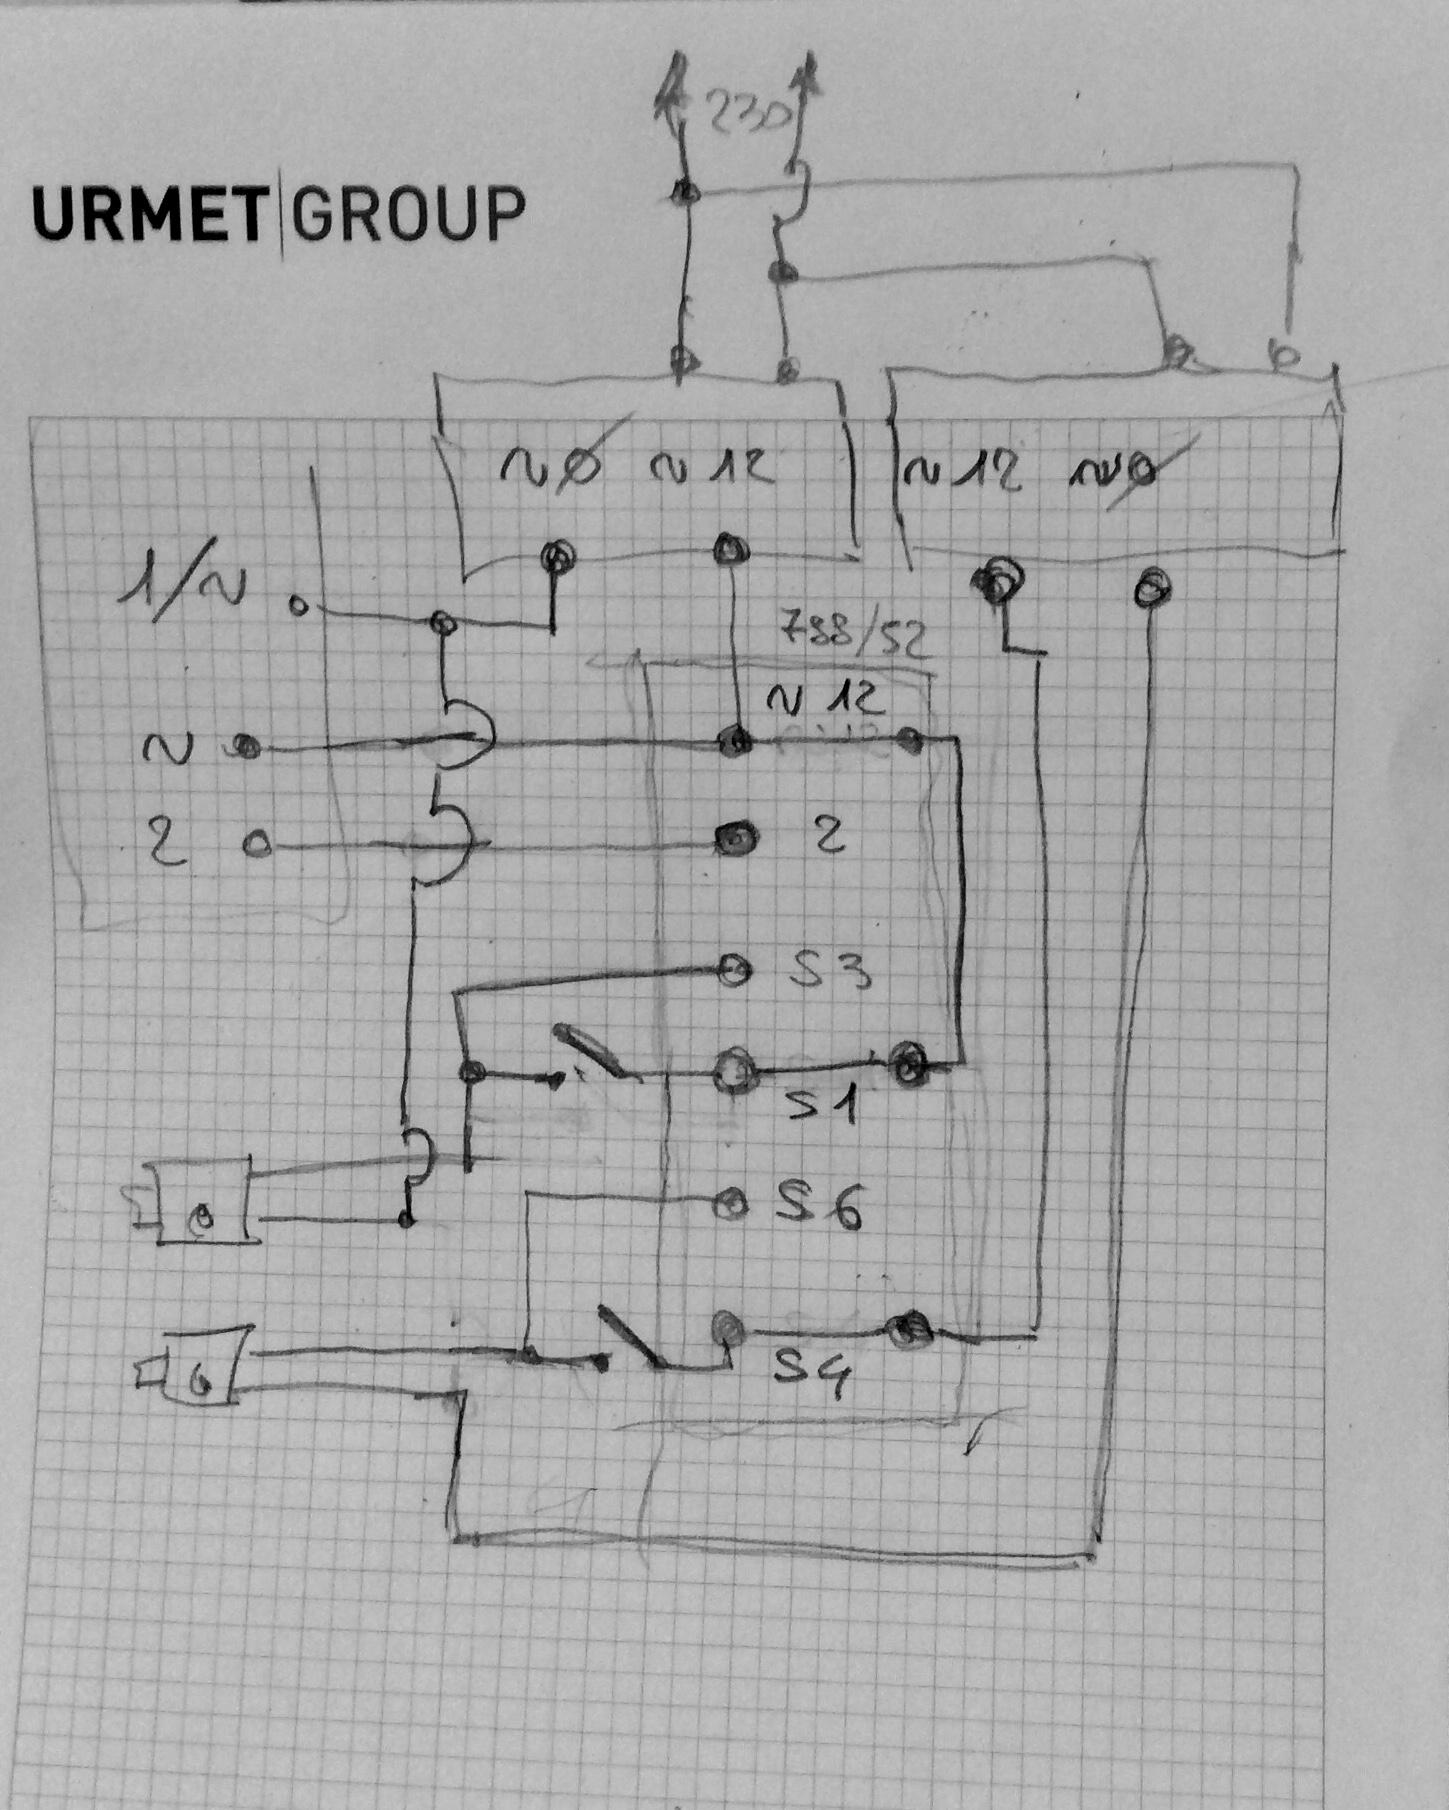 230
URMET GROUP
~0 ~12 ~12 ~0
1/~
788/52
~12
~
2 2
S3
S1
S6
S4